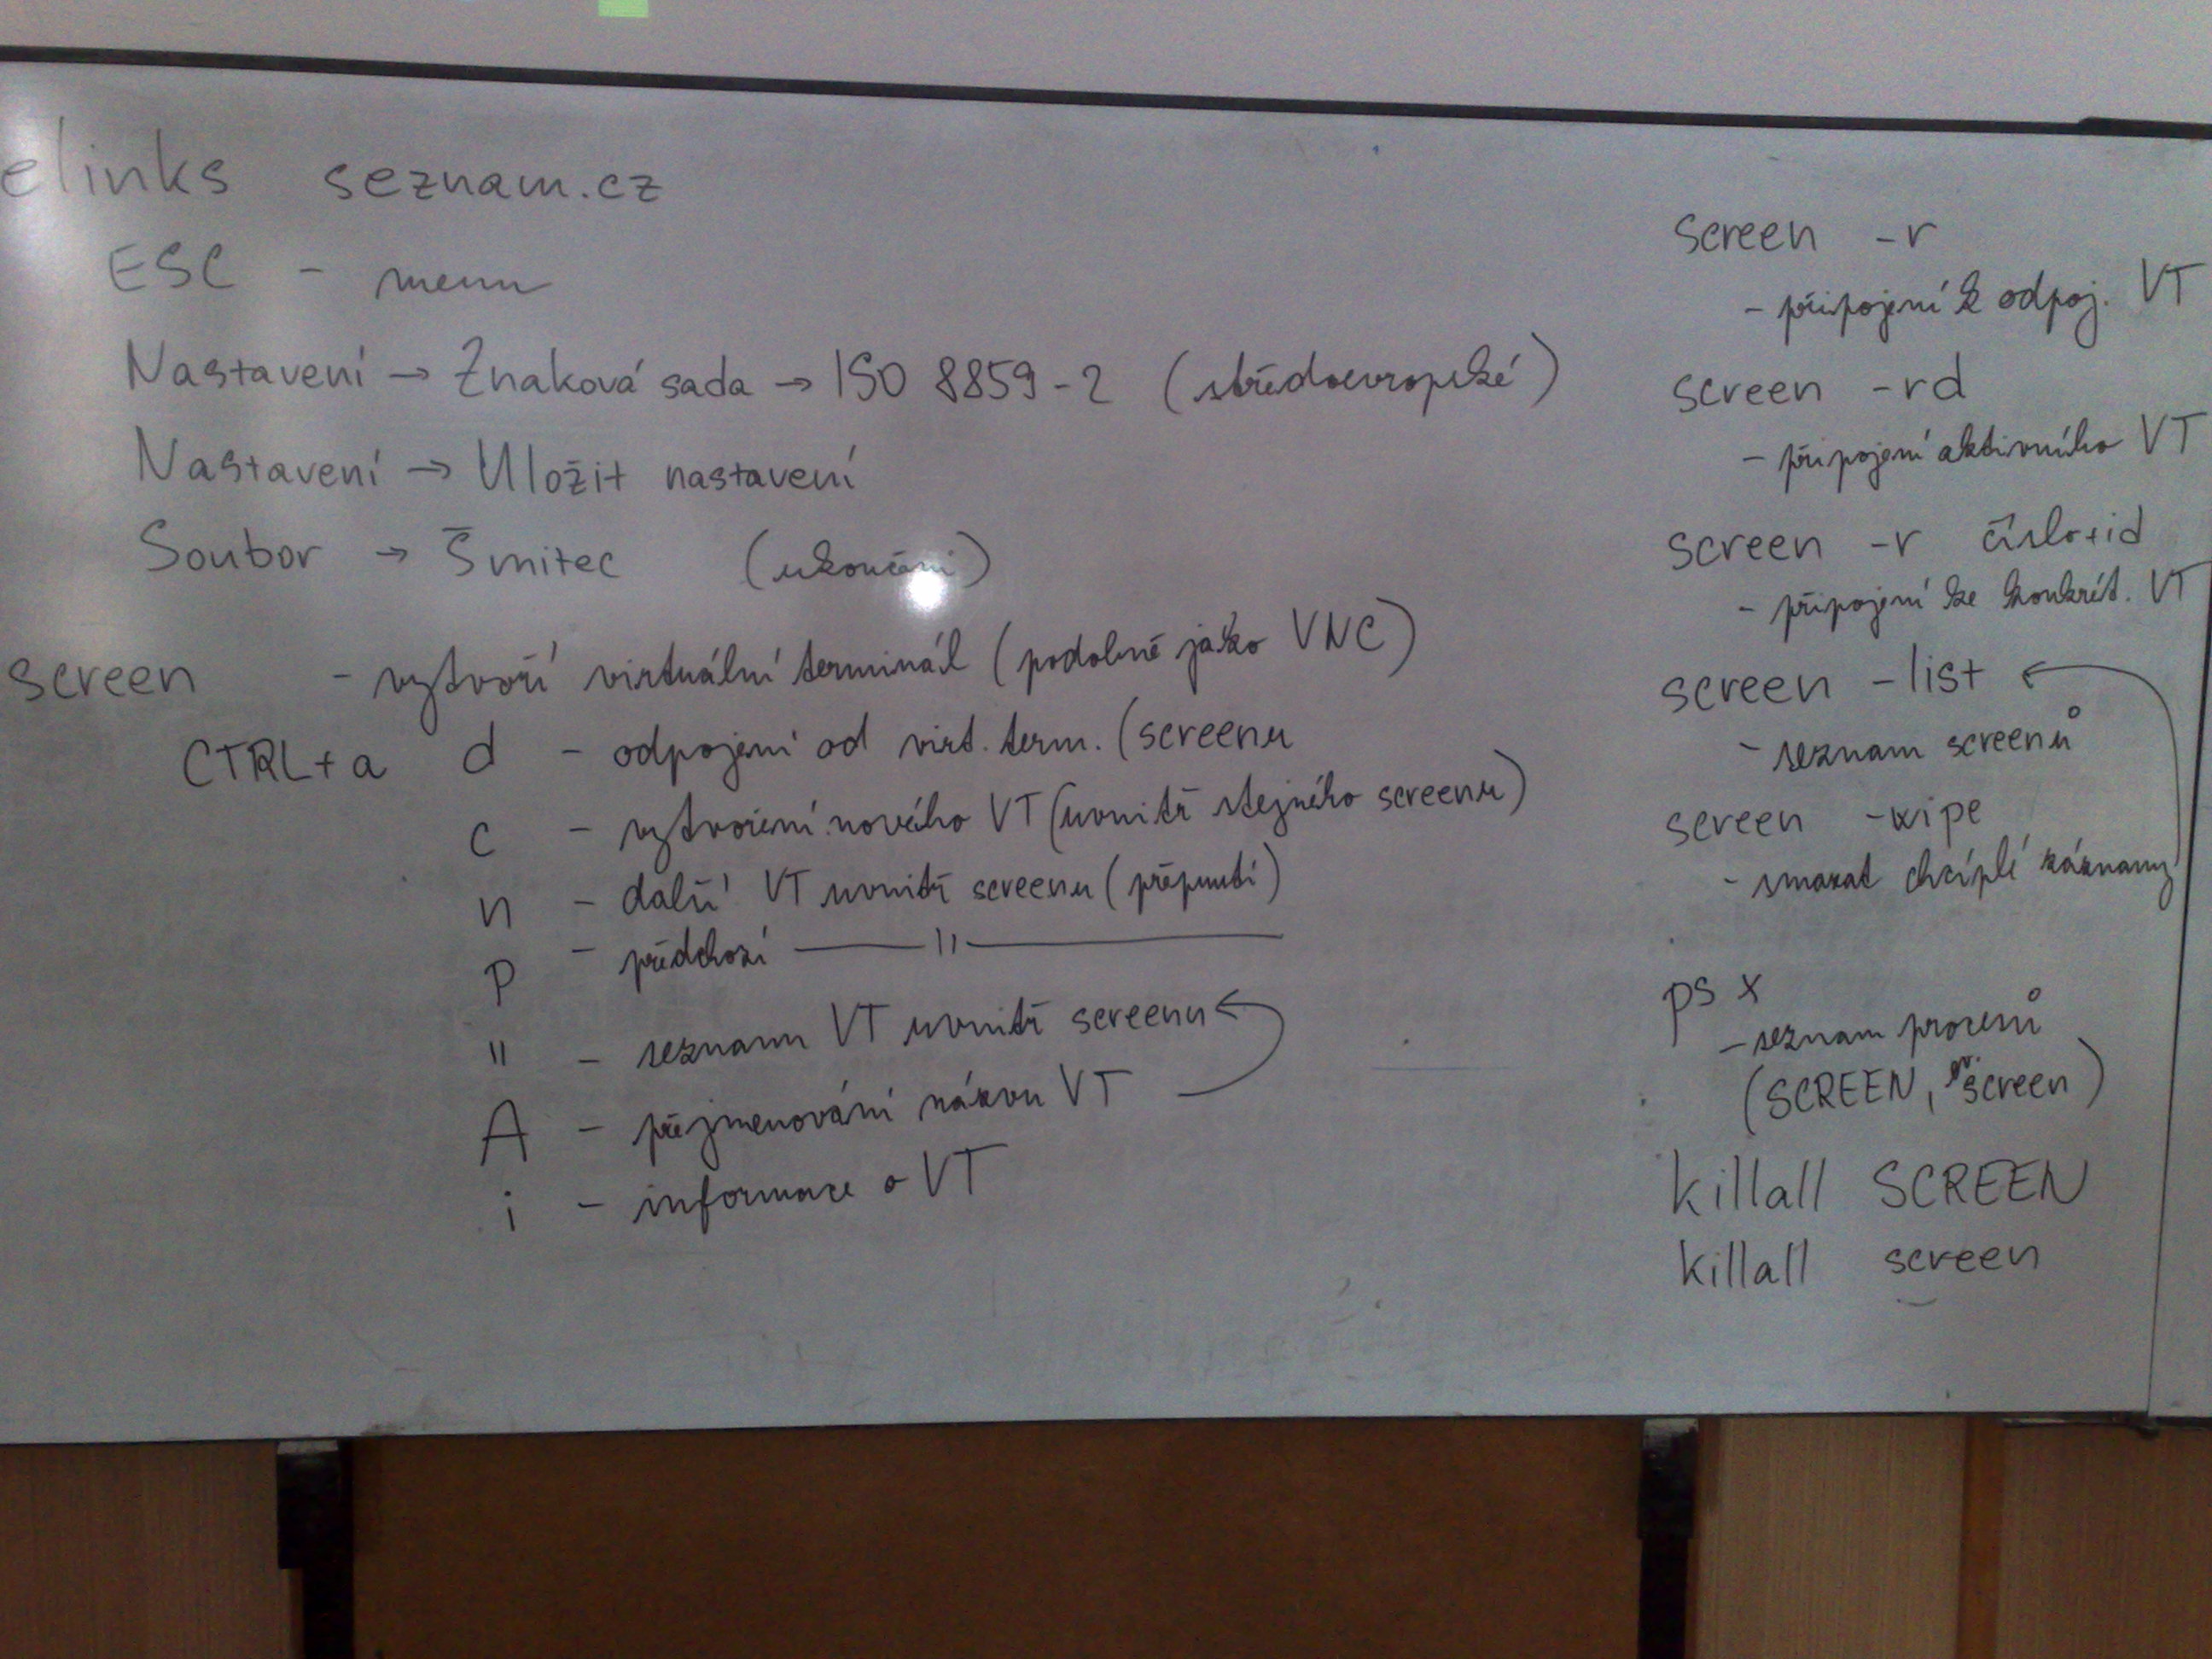 elinks seznam.cz
ESC - menu
Nastavení → Znaková sada → ISO 8859-2 (středoevropské)
Nastavení → Uložit nastavení
Soubor → Šmitec (ukončení)
screen - vytvoří virtuální terminál (podobně jako VNC)
CTRL+a d - odpojení od virt. term. (screenu
c - vytvoření nového VT (uvnitř stejného screenu)
n - další VT uvnitř screenu (přepnutí)
p - předchozí —— || ——
" - seznam VT uvnitř screenu
A - přejmenování názvu VT
i - informace o VT
screen -r
- připojení k odpoj. VT
screen -rd
- připojení aktivního VT
screen -r číslo+id
- připojení ke konkrét. VT
screen -list
- seznam screenů
screen -wipe
- smazat chcíplé záznamy
ps x
- seznam procesů
(SCREEN, screen)
killall SCREEN
killall screen